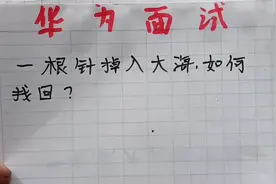 华为面试
一根针掉入大海,如何
找回?